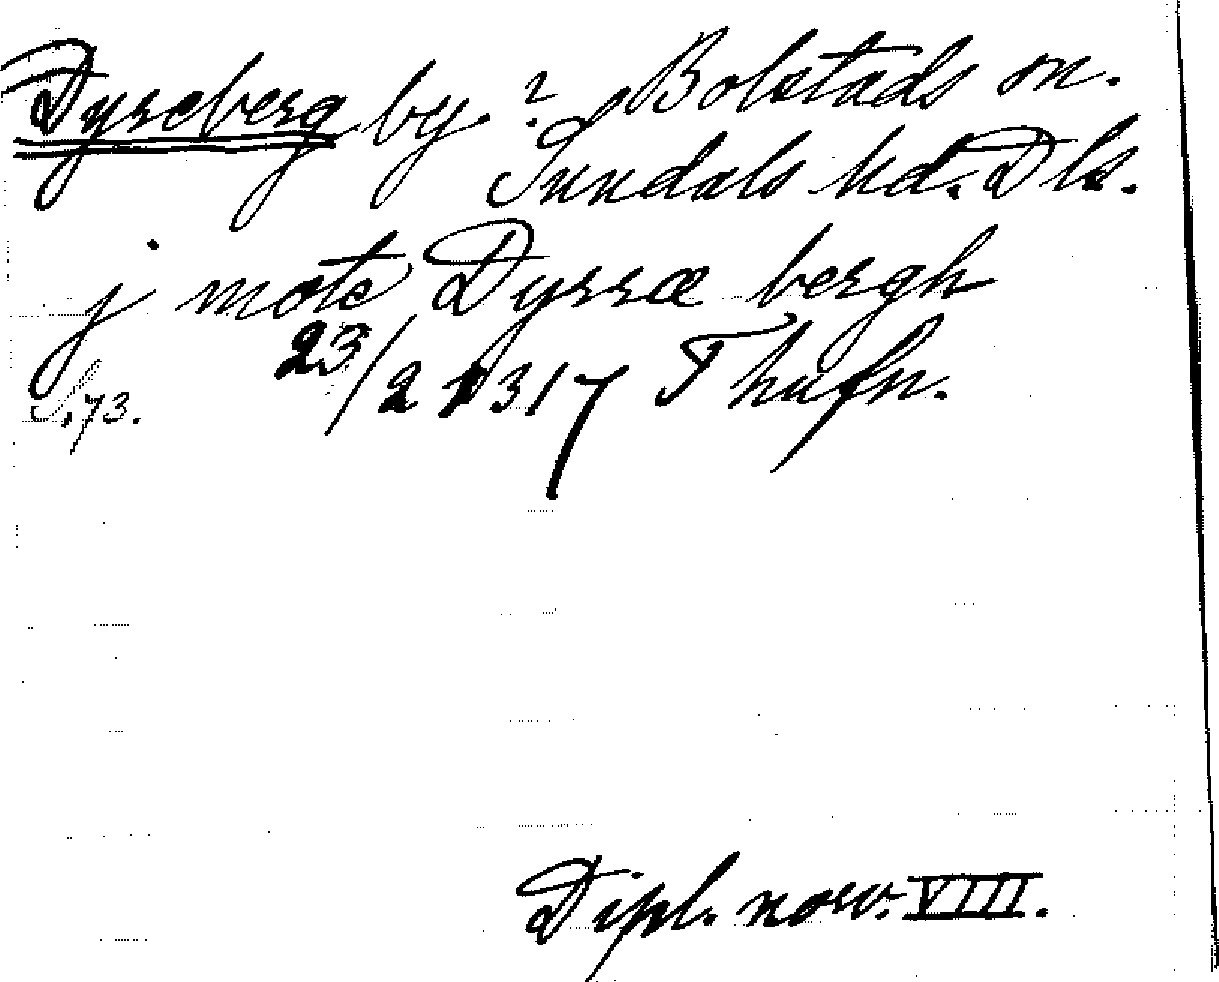 Dyreberg by. ? Bolstads sn.
Sundals hd. Dls.
j mote Dyrræ bergh
23/2 1317 Thufn.
S. 73.
Dipl. norv. VIII.